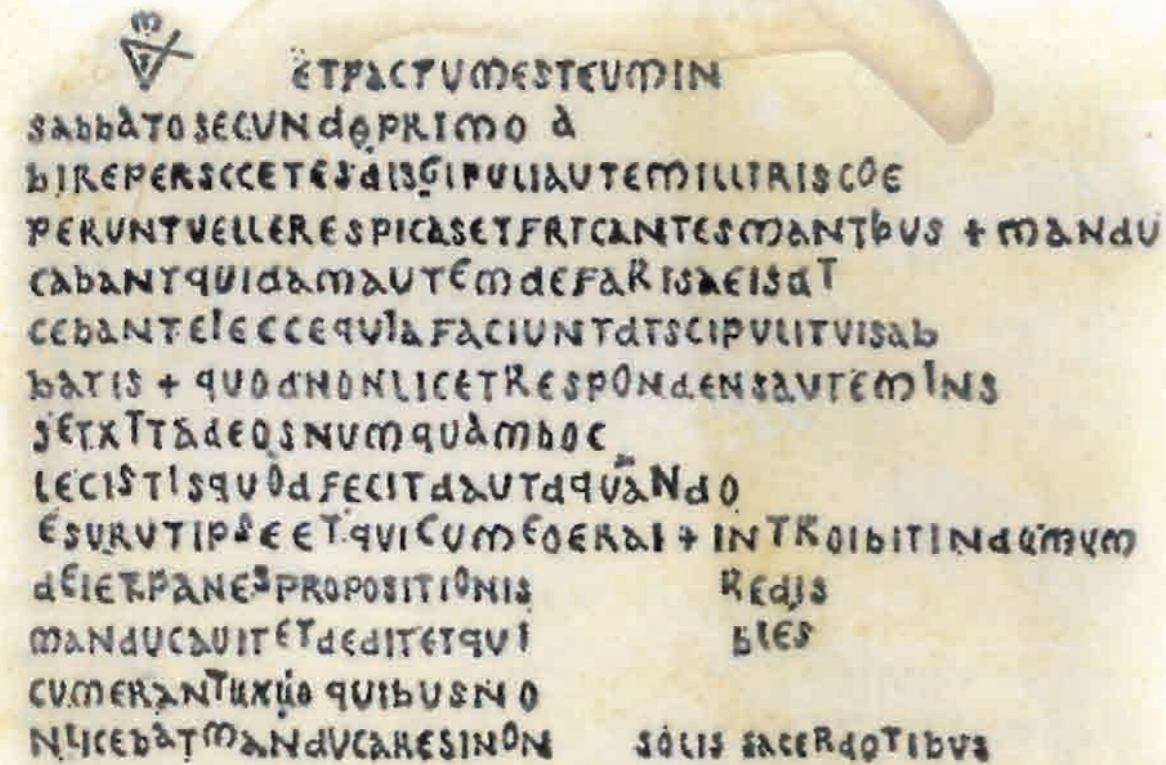 ETFACTUMESTEUMIN
SABBATOSECUNDOPRIMO A
BIREPERSCCETESDISGIPULIAUTEMILLIRISCOE
PERUNTVELLERESPICASETFRICANTESMANIBUS + MANDU
CABANTQUIDAMAUTEMDEFARISAEISDI
CEBANTEIECCEQUIAFACIUNTDISCIPULITUISAB
BATIS + QUODNONLICETRESPONDENSAUTEMINS
SETXITADEOSNUMQUAMHOC
LECISTISQUODFECITDAUTDQUANDO
ESURUTIPSEETQUICUMEOERAI + INTROIBITINDUMUM
DEIETPANESPROPOSITIONIS REDIS
MANDUCAUITETDEDITETQUI BLES
CUMERANTUXUO QUIBUSNO
NLICEBATMANDUCARESINON SOLIS SACERDOTIBUS